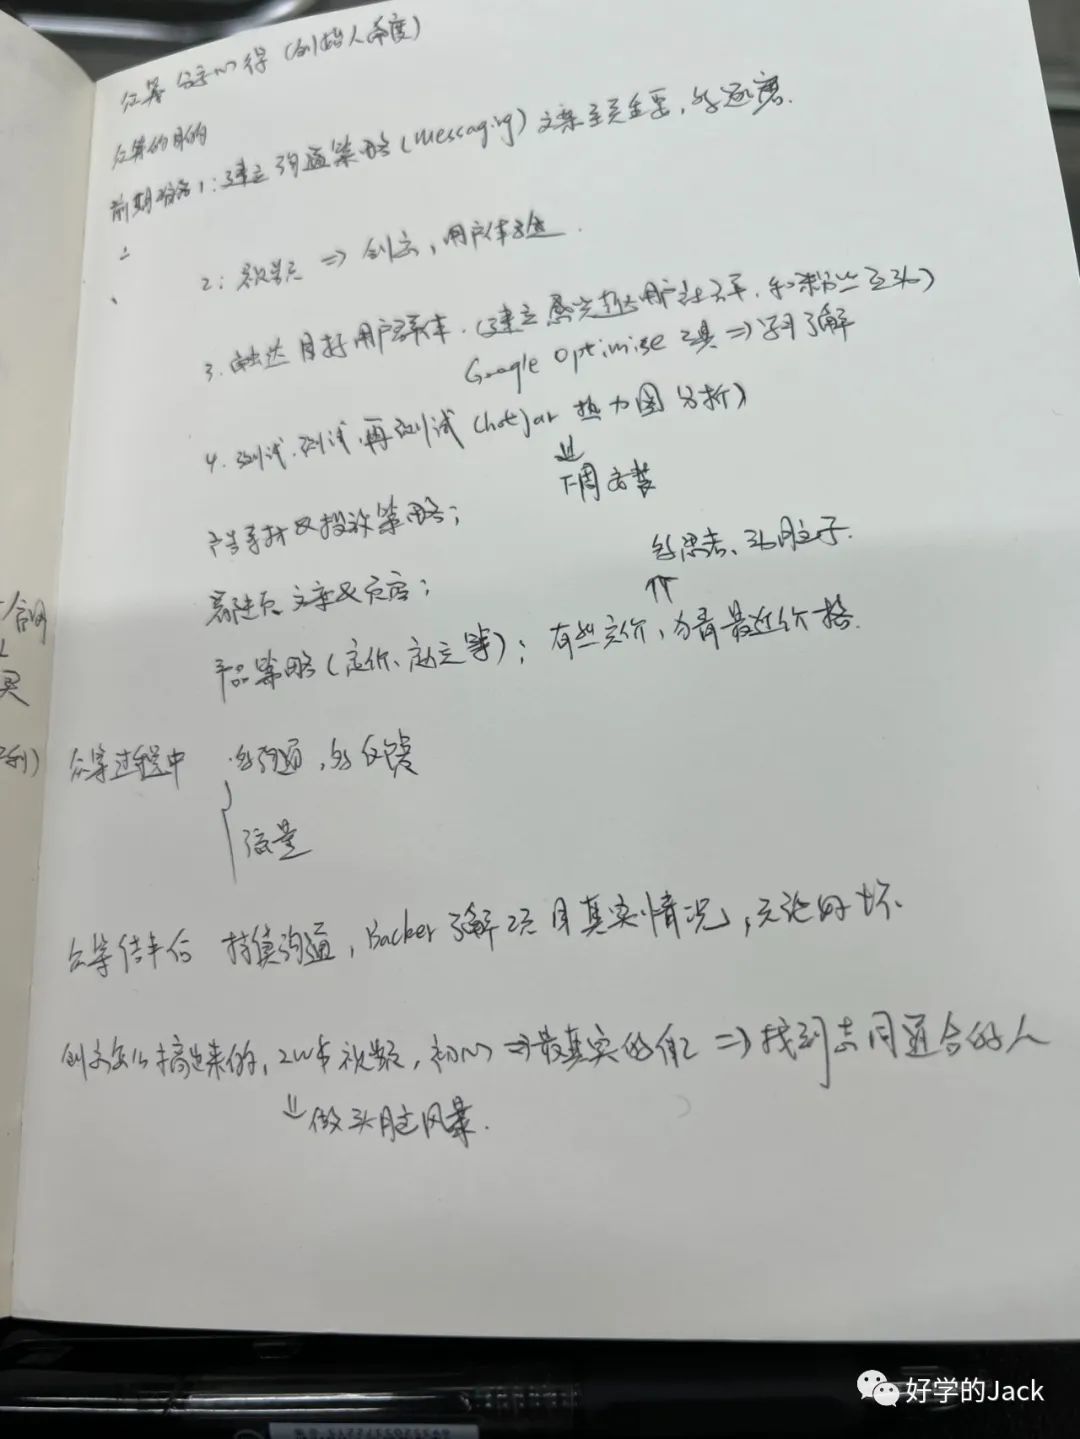 众筹分享心得(创始人角度)
众筹的目的
前期准备1:建立沟通策略(messaging)文案至关重要,多逐磨.
2:视觉 ⇒ 创意,用户体验.
3.触达目标用户群体.(建立 用户关系.和粉丝互动)
Google Optimise 工具 ⇒ 学习了解
4.测试.测试.再测试(hotjar 热力图分析)
⇓
下周安装
广告素材及投放策略;
多思考、动脑子.
着陆页 文案及 ;
⇑
产品策略(定价、 等);有些定价,勿看最近价格.
众筹过程中 多沟通,多反馈
流量
众筹结束后 持续沟通,Backer了解项目真实情况,无论好坏
创意怎么搞出来的,2W字视频,初心 ⇒ 最真实的自己 ⇒ 找到志同道合的人
⇓ 做头脑风暴.
合同
利)
好学的Jack